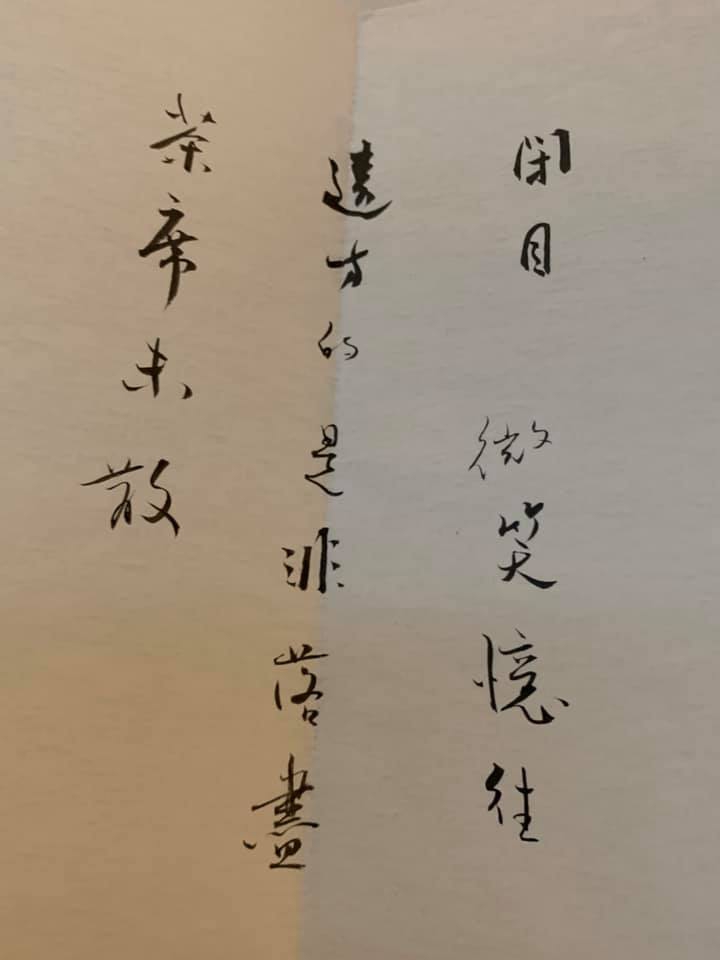 閉目 微笑憶往
遠方的是非落盡
茶席未散